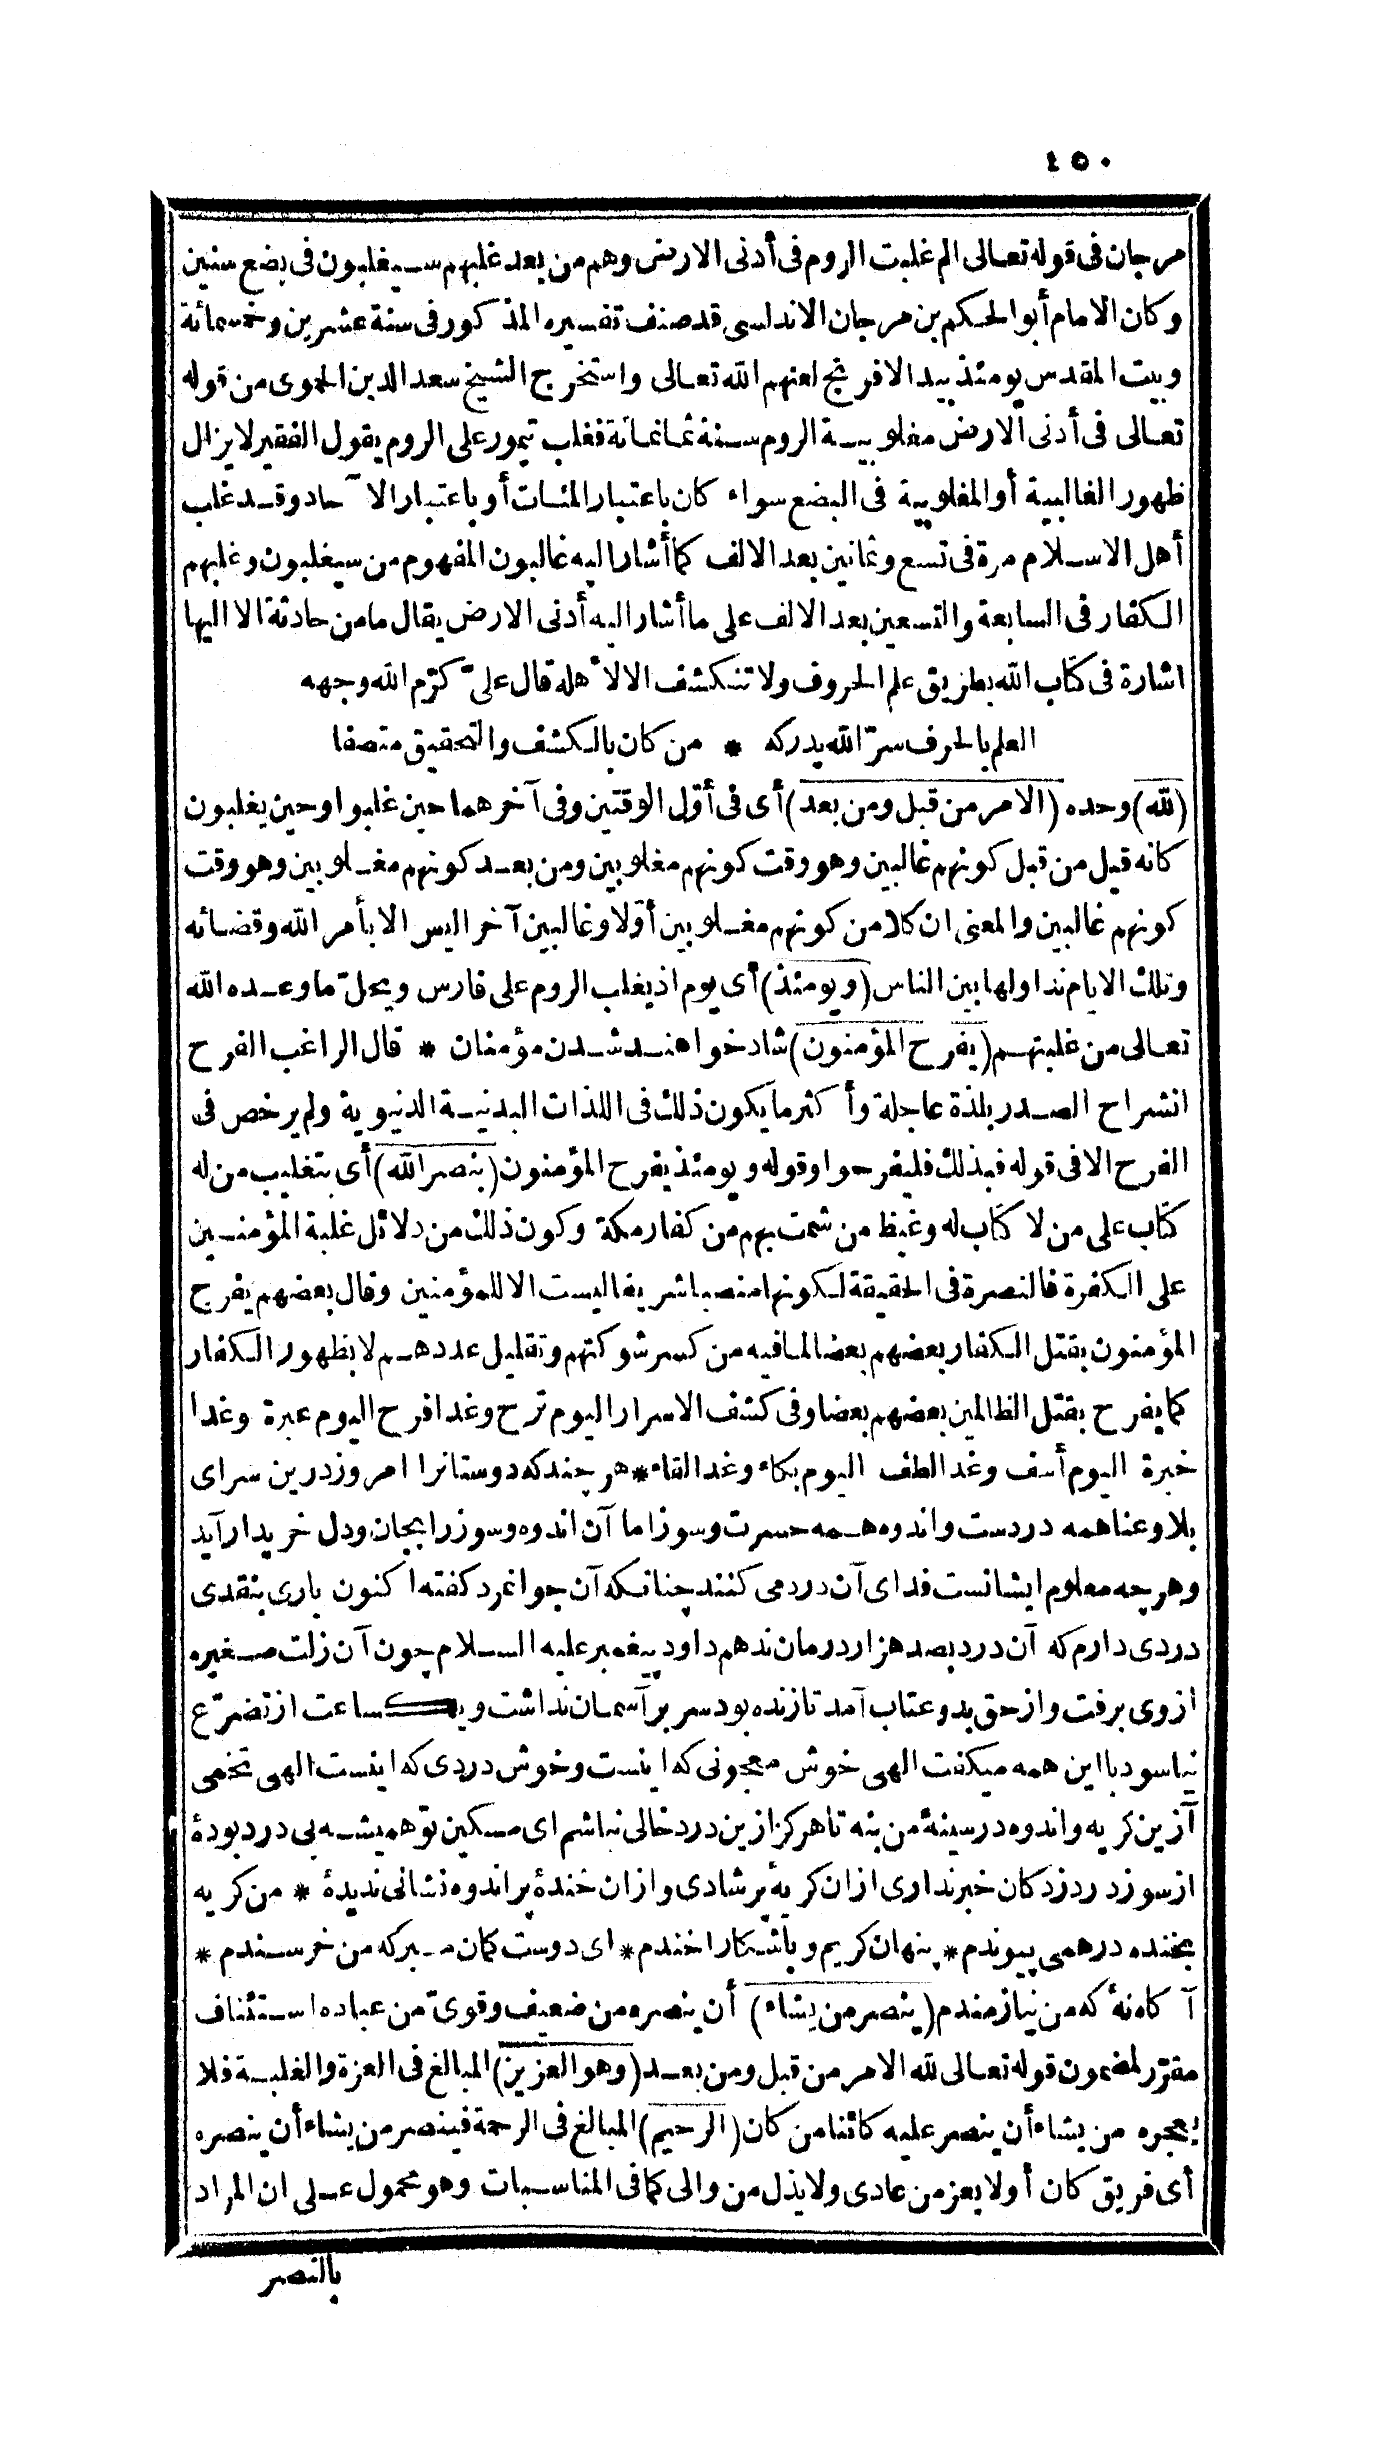 ٤٥٠
مرجان فى قوله تعالى الم غلبت الروم فى أدنى الارض وهم من بعد غلبهم سيغلبون فى بضع سنين
وكان الامام أبو الحكم بن مرجان الاندلسى قد صنف تفسيره المذكور فى سنة عشرين وخمسمائة
وبيت المقدس يومئذ بيد الافرنج لعنهم الله تعالى واستخرج الشيخ سعد الدين الحموى من قوله
تعالى فى أدنى الارض مغلوبية الروم سنة ثمانمائة فغلب تيمور على الروم يقول الفقير لا يزال
ظهور الغالبية أو المغلوبية فى البضع سواء كان باعتبار المئات أو باعتبار الآحاد وقد غلب
أهل الاسلام مرة فى تسع وثمانين بعد الالف كما أشار اليه غالبون المفهوم من سيغلبون وغلبهم
الكفار فى السابعة والتسعين بعد الالف على ما أشار اليه أدنى الارض يقال ما من حادثة الا اليها
اشارة فى كتاب الله بطريق علم الحروف ولا تنكشف الا لأهله قال علىّ كرّم الله وجهه
العلم بالحرف سرّ الله يدركه * من كان بالكشف والتحقيق متصفا
(لله) وحده (الامر من قبل ومن بعد) أى فى أوّل الوقتين وفى آخرهما حين غلبوا وحين يغلبون
كانه قيل من قبل كونهم غالبين وهو وقت كونهم مغلوبين ومن بعد كونهم مغلوبين وهو وقت
كونهم غالبين والمعنى ان كلا من كونهم مغلوبين أوّلا وغالبين آخرا ليس الا بأمر الله وقضائه
وتلك الايام نداولها بين الناس (ويومئذ) أى يوم اذ يغلب الروم على فارس ويحلّ ما وعده الله
تعالى من غلبتهم (يفرح المؤمنون) شاد خواهند شدن مؤمنان * قال الراغب الفرح
انشراح الصدر بلذة عاجلة وأكثر ما يكون ذلك فى اللذات البدنية الدنيوية ولم يرخص فى
الفرح الا فى قوله فبذلك فليفرحوا وقوله ويومئذ يفرح المؤمنون (بنصر الله) أى بتغليب من له
كتاب على من لا كتاب له وغيظ من شمت بهم من كفار مكة وكون ذلك من دلائل غلبة المؤمنين
على الكفرة فالنصرة فى الحقيقة لكونها منصبا شريفا ليست الا للمؤمنين وقال بعضهم يفرح
المؤمنون بقتل الكفار بعضهم بعضا لما فيه من كسر شوكتهم وتقليل عددهم لا بظهور الكفار
كما يفرح بقتل الظالمين بعضهم بعضا وفى كشف الاسرار اليوم ترح وغدا فرح اليوم عبرة وغدا
خبرة اليوم أسف وغدا لطف اليوم بكاء وغدا لقاء * هر چند كه دوستانرا امروز درين سراى
بلا وعنا همه دردست واندوه همه حسرت وسوز اما آن اندوه وسوز را بجان ودل خريدار آيد
وهر چه معلوم ايشانست فداى آن درد مى كنند چنانكه آن جوانمرد كفته اكنون بارى بنقدى
دردى دارم كه آن درد بصد هزار درمان ندهم داود پيغمبر عليه السلام چون آن زلت صغيره
از وى برفت واز حق بدو عتاب آمد تا زنده بود سر بر آسمان نداشت ويكساعت از تضرّع
نياسود با اين همه ميكفت الهى خوش معجونى كه اينست وخوش دردى كه اينست الهى تخمى
ازين كريه واندوه در سينهٔ من بنه تا هركز ازين درد خالى نباشم اى مسكين تو هميشه بى درد بودهٔ
از سوز درد زدكان خبر ندارى از ان كريهٔ پر شادى واز ان خندهٔ پر اندوه نشانى نديدهٔ * من كريه
بخنده در همى پيوندم * پنهان كريم وبآشكارا خندم * اى دوست كمان مبر كه من خرسندم *
آكاه نهٔ كه من نيازمندم (ينصر من يشاء) أن ينصره من ضعيف وقوىّ من عباده استئناف
مقرّر لمضمون قوله تعالى لله الامر من قبل ومن بعد (وهو العزيز) المبالغ فى العزة والغلبة فلا
يعجزه من يشاء أن ينصر عليه كائنا من كان (الرحيم) المبالغ فى الرحمة فينصر من يشاء أن ينصره
أى فريق كان أو لا يعز من عادى ولا يذل من والى كما فى المناسبات وهو محمول على ان المراد
بالنصر